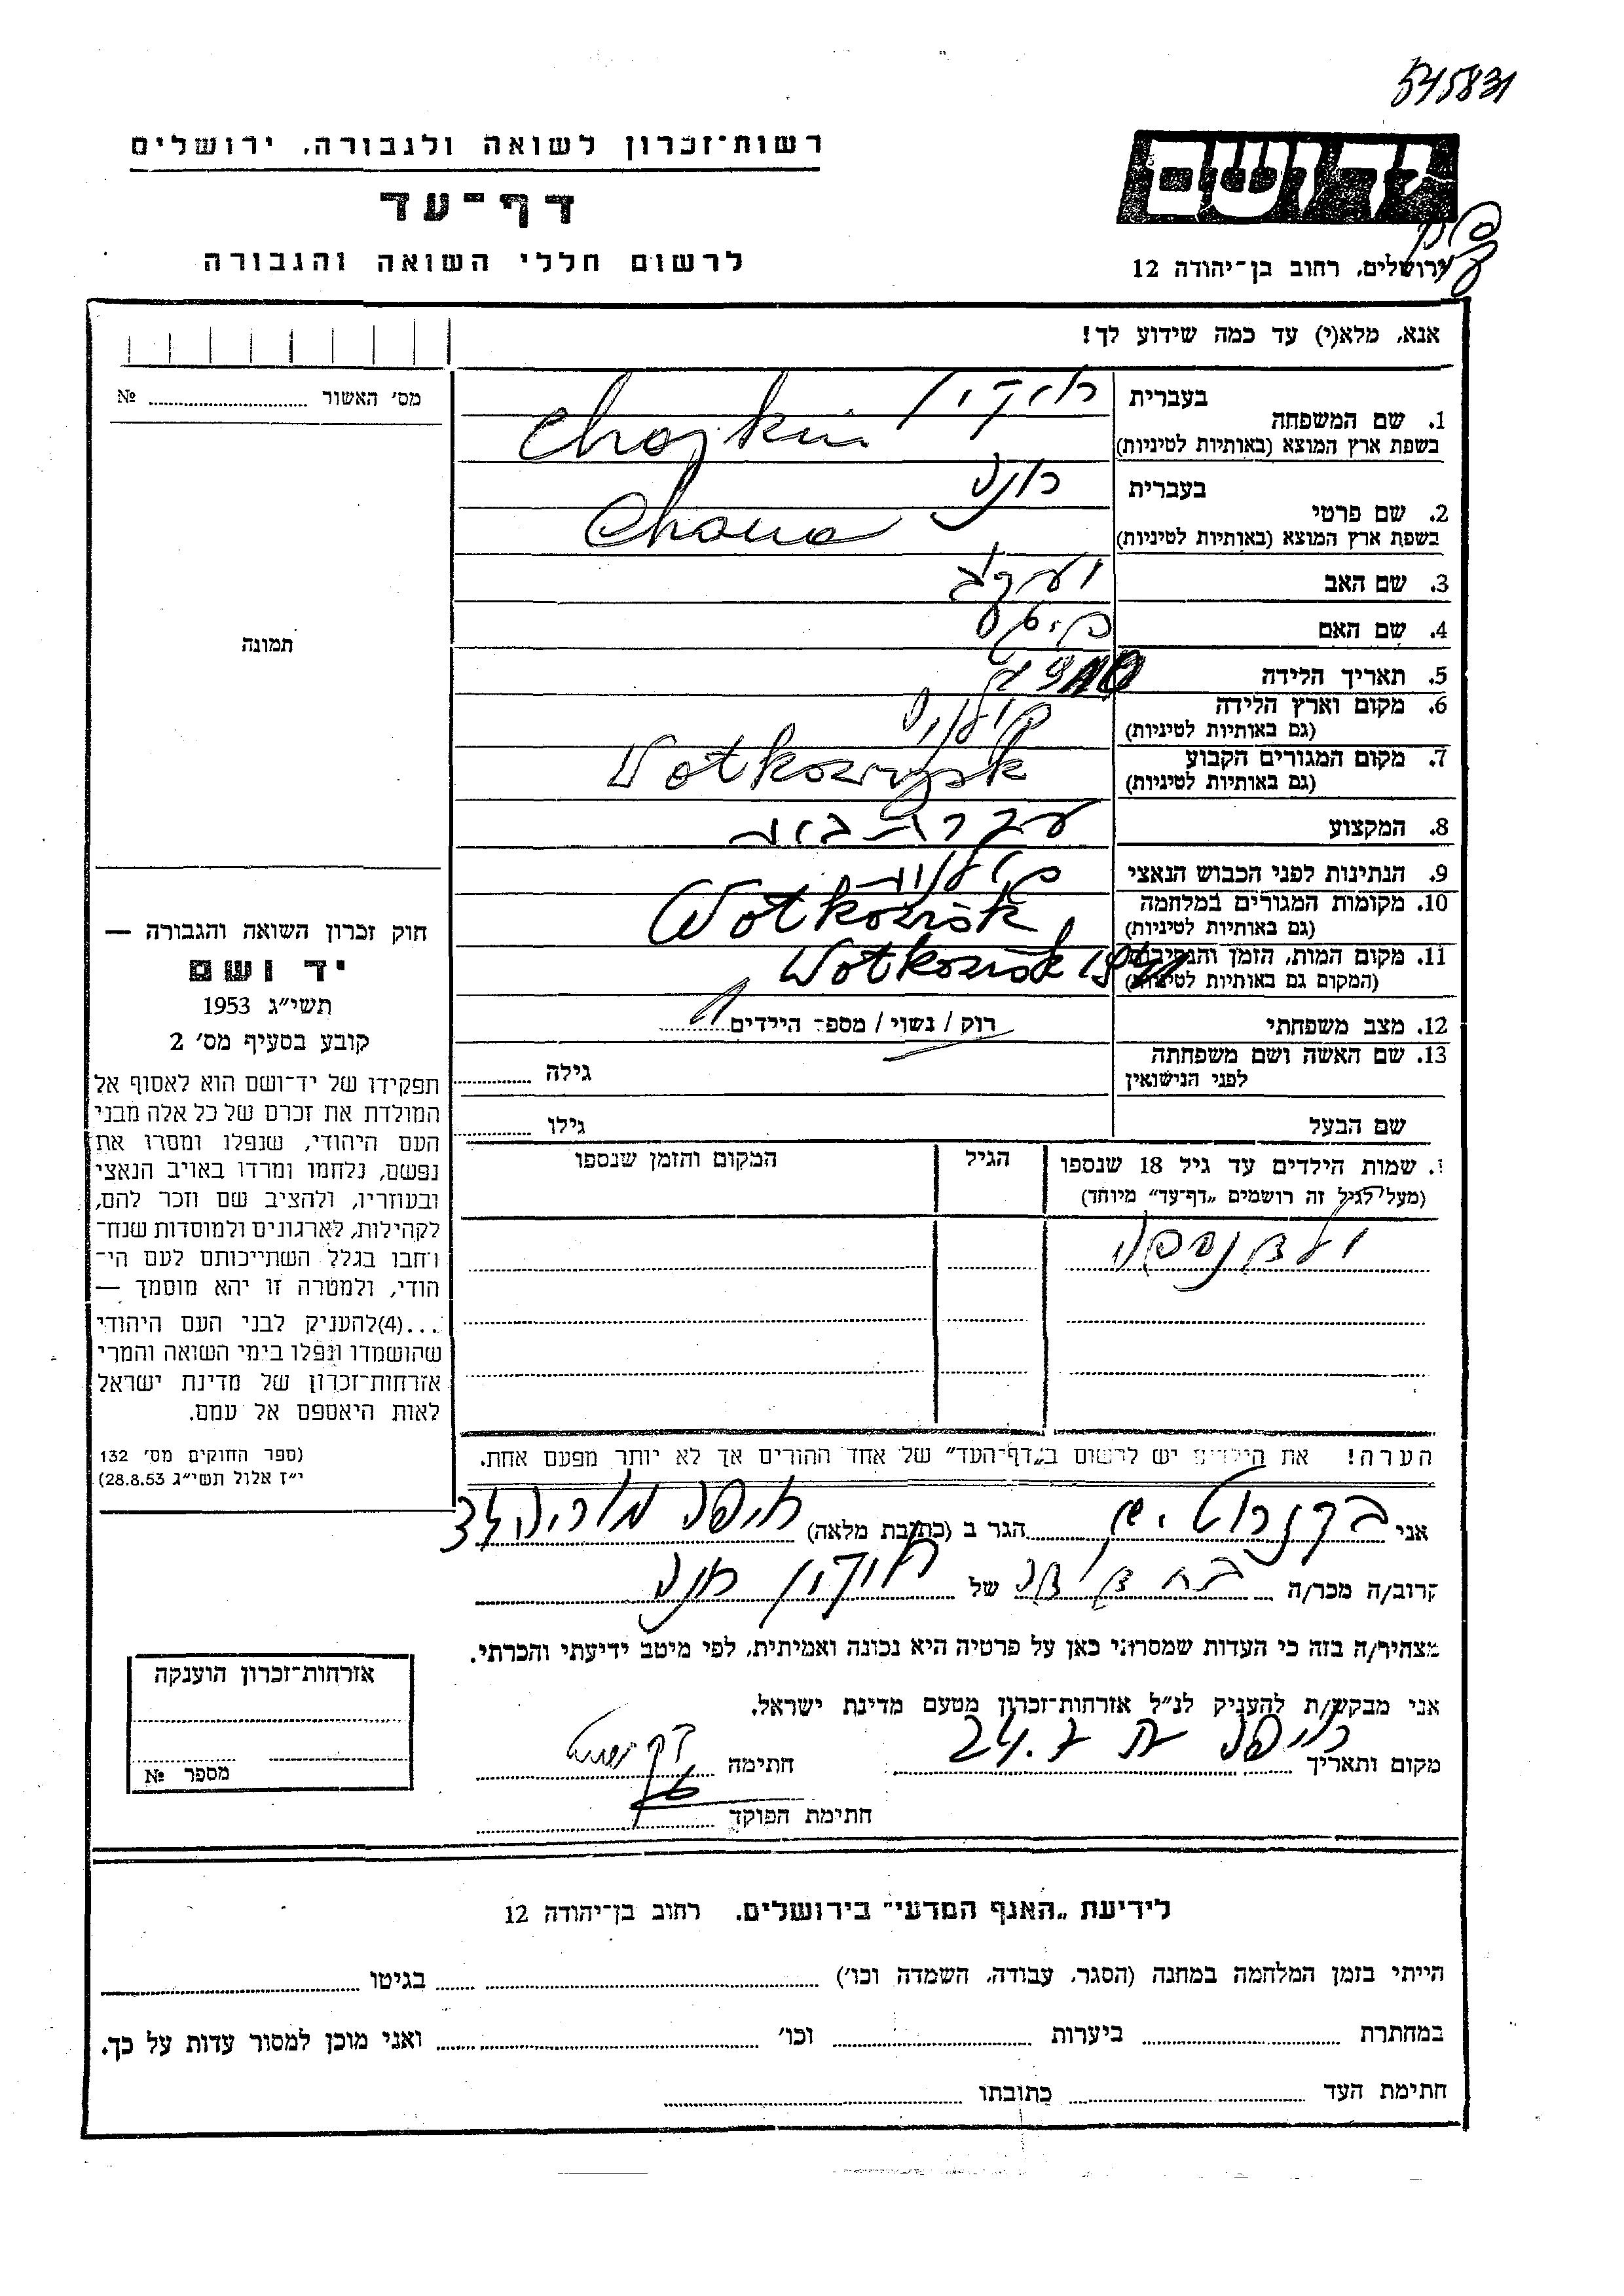 545831
רשות־זכרון לשואה ולגבורה, ירושלים
יד ושם
דף־עד
לרשום חללי השואה והגבורה
ירושלים, רחוב בן־יהודה 12
אנא, מלא(י) עד כמה שידוע לך!
מס׳ האשור № 
בעברית
1. שם המשפחה
בשפת ארץ המוצא (באותיות לטיניות) Chojkin
בעברית חנה
2. שם פרטי
בשפת ארץ המוצא (באותיות לטיניות) Chana
3. שם האב יעקב
4. שם האם
תמונה
5. תאריך הלידה
6. מקום וארץ הלידה פולניה
(גם באותיות לטיניות)
7. מקום המגורים הקבוע
(גם באותיות לטיניות)
8. המקצוע עקרת בית
9. הנתינות לפני הכבוש הנאצי פולנית
10. מקומות המגורים במלחמה
(גם באותיות לטיניות)
11. מקום המות, הזמן והנסיבות 1941
(המקום גם באותיות לטיניות)
12. מצב משפחתי רוק / נשוי / מספר הילדים 1
13. שם האשה ושם משפחתה
לפני הנישואין גילה
שם הבעל גילו
חוק זכרון השואה והגבורה —
יד ושם
תשי״ג 1953
קובע בסעיף מס׳ 2
תפקידו של יד־ושם הוא לאסוף אל
המולדת את זכרם של כל אלה מבני
העם היהודי, שנפלו ומסרו את
נפשם, נלחמו ומרדו באויב הנאצי
ובעוזריו, ולהציב שם וזכר להם,
לקהילות, לארגונים ולמוסדות שנח־
רחבו בגלל השתייכותם לעם הי־
הודי, ולמטרה זו יהא מוסמך —
...(4)להעניק לבני העם היהודי
שהושמדו ונפלו בימי השואה והמרי
אזרחות־זכרון של מדינת ישראל
לאות היאספם אל עמם.
(ספר החוקים מס׳ 132
י״ז אלול תשי״ג 28.8.53)
שמות הילדים עד גיל 18 שנספו הגיל המקום והזמן שנספו
(מעל לגיל זה רושמים „דף־עד” מיוחד)
הערה! את הילדים יש לרשום ב„דף־העד” של אחד ההורים אך לא יותר מפעם אחת.
אני הגר ב (כתובת מלאה) חיפה מוריה
קרוב/ה מכר/ה בת דודה של חנה
מצהיר/ה בזה כי העדות שמסרתי כאן על פרטיה היא נכונה ואמיתית, לפי מיטב ידיעתי והכרתי.
אני מבקש/ת להעניק לנ״ל אזרחות־זכרון מטעם מדינת ישראל.
מקום ותאריך חיפה חתימה
חתימת הפוקד
אזרחות־זכרון הוענקה
מספר №
לידיעת „האגף המדעי” בירושלים, רחוב בן־יהודה 12
הייתי בזמן המלחמה במחנה (הסגר, עבודה, השמדה וכו׳) בגיטו
במחתרת ביערות וכו׳ ואני מוכן למסור עדות על כך.
חתימת העד כתובתו